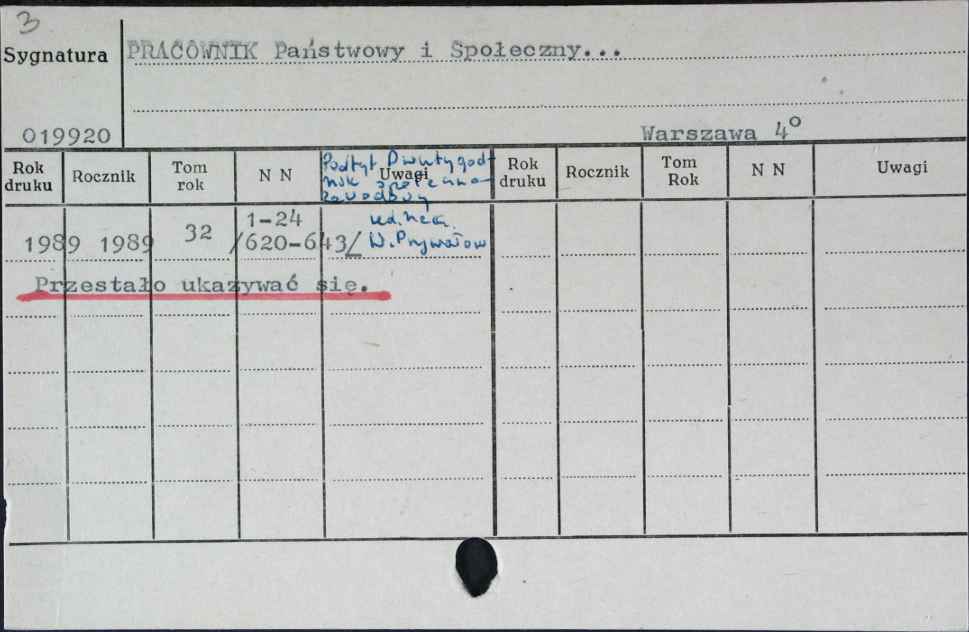 3
Sygnatura PRACOWNIK Państwowy i Społeczny...
019920 Warszawa 4°
Rok druku Rocznik Tom rok N N Uwagi Rok druku Rocznik Tom Rok N N Uwagi
Podtyt. Dwutygod-
nik społeczno-
zawodowy
1-24 red. nacz.
1989 1989 32 /620-643/ W. Prywałow
Przestało ukazywać się.